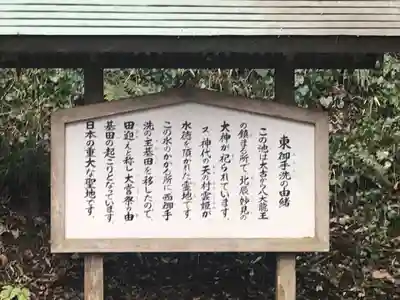 東御手洗の由緒
この池は太古から大龍王
の鎮まる所で、北辰妙見の
大神が祀られています。
又、神代の天の村雲姫が
水徳を頂かれた霊地です。
この水のかかる所に西御手
洗の主基田を移したので、
田迎えと称し大嘗祭の由
基田の起こりとなっています
日本の重大な聖地です。